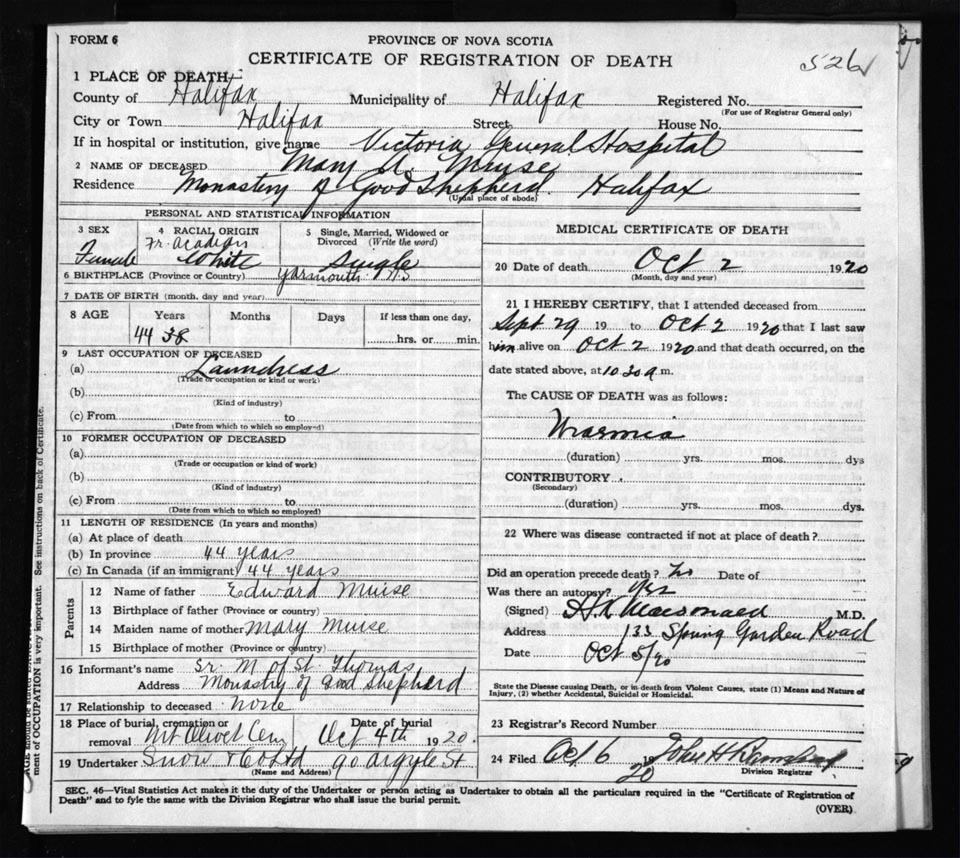 FORM 6
PROVINCE OF NOVA SCOTIA
CERTIFICATE OF REGISTRATION OF DEATH
526
1 PLACE OF DEATH
County of Halifax Municipality of Halifax Registered No.
(For use of Registrar General only)
City or Town Halifax Street House No.
If in hospital or institution, give name Victoria General Hospital
2 NAME OF DECEASED Mary A. Muise
Residence Monastery of Good Shepherd. Halifax
(Usual place of abode)
PERSONAL AND STATISTICAL INFORMATION
3 SEX
Female
4 RACIAL ORIGIN
Fr. Acadian
White
5 Single, Married, Widowed or
Divorced (Write the word)
Single
6 BIRTHPLACE (Province or Country) Yarmouth N.S
7 DATE OF BIRTH (month, day and year)
8 AGE Years Months Days If less than one day,
44 38 hrs. or min.
9 LAST OCCUPATION OF DECEASED
(a) Laundress
(Trade or occupation or kind of work)
(b)
(Kind of industry)
(c) From to
(Date from which to which so employed)
10 FORMER OCCUPATION OF DECEASED
(a)
(Trade or occupation or kind of work)
(b)
(Kind of industry)
(c) From to
(Date from which to which so employed)
11 LENGTH OF RESIDENCE (In years and months)
(a) At place of death
(b) In province 44 years
(c) In Canada (if an immigrant) 44 years
Parents
12 Name of father Edward Muise
13 Birthplace of father (Province or country)
14 Maiden name of mother Mary Muise
15 Birthplace of mother (Province or country)
16 Informant's name Sr. M of St. Thomas
Address Monastry of Good Shepherd
17 Relationship to deceased none
18 Place of burial, cremation or removal Mt Olivet Cem Date of burial Oct 4th 1920.
19 Undertaker Snow & Co Ltd 90 Argyle St.
(Name and Address)
MEDICAL CERTIFICATE OF DEATH
20 Date of death Oct 2 1920
(Month, day and year)
21 I HEREBY CERTIFY, that I attended deceased from
Sept 29 19 to Oct 2 1920 that I last saw
him alive on Oct 2 1920 and that death occurred, on the
date stated above, at 10.30 a m.
The CAUSE OF DEATH was as follows:
Uraemia
(duration) yrs. mos. dys
CONTRIBUTORY
(Secondary)
(duration) yrs. mos. dys.
22 Where was disease contracted if not at place of death?
Did an operation precede death? No Date of
Was there an autopsy? Yes
(Signed) Macdonald M.D.
Address 133 Spring Garden Road
Date Oct 5/20
State the Disease causing Death, or in death from Violent Causes, state (1) Means and Nature of
Injury, (2) whether Accidental, Suicidal or Homicidal.
23 Registrar's Record Number
24 Filed Oct. 6 19 20 John H
Division Registrar
SEC. 46—Vital Statistics Act makes it the duty of the Undertaker or person acting as Undertaker to obtain all the particulars required in the "Certificate of Registration of
Death" and to fyle the same with the Division Registrar who shall issue the burial permit.
(OVER)
ment of OCCUPATION is very important. See instructions on back of Certificate.